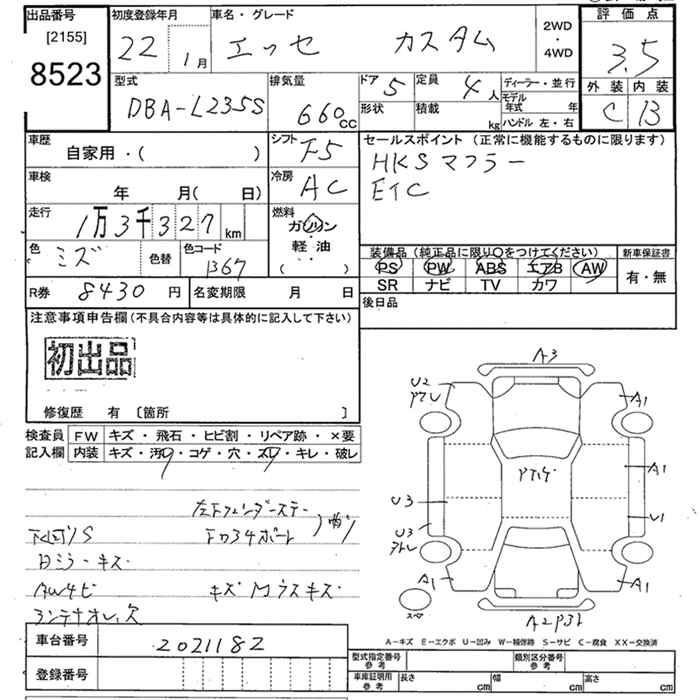 出品番号 初度登録年月 車名・グレード 2WD・4WD 評価点
[2155]
8523
22 1月 エッセ カスタム 3.5
型式 排気量 ドア 定員 ディーラー・並行 外装 内装
DBA-L235S 660cc 5 4人 C B
形状 積載 kg モデル年式 年
ハンドル 左・右
車歴 シフト セールスポイント (正常に機能するものに限ります)
自家用・( ) F5 HKSマフラー
車検 冷房 ETC
年 月( 日) AC
走行 燃料
1万3千327km ガソリン
軽油
( )
色 ミズ 色替 色コード B67
装備品 (純正品に限り○をつけてください) 新車保証書
PS PW ABS エアB AW 有・無
SR ナビ TV カワ
R券 8430円 名変期限 月 日 後日品
注意事項申告欄(不具合内容等は具体的に記入して下さい)
初出品
修復歴 有 〔箇所 〕
検査員 FW キズ・飛石・ヒビ割・リペア跡・×要
記入欄 内装 キズ・汚レ・コゲ・穴・スレ・キレ・破レ
左Fフェンダーステー
下回リS
Bミラーキズ
AWサビ
キズ
A3
U2
A1
A1
U3
U1
U3
A1
A1
スペア
A-キズ E-エクボ U-凹み W-補修跡 S-サビ C-腐食 XX-交換済
車台番号 2021182
登録番号
型式指定番号 参考 類別区分番号 参考
車庫証明用 参考 長さ cm 幅 cm 高さ cm